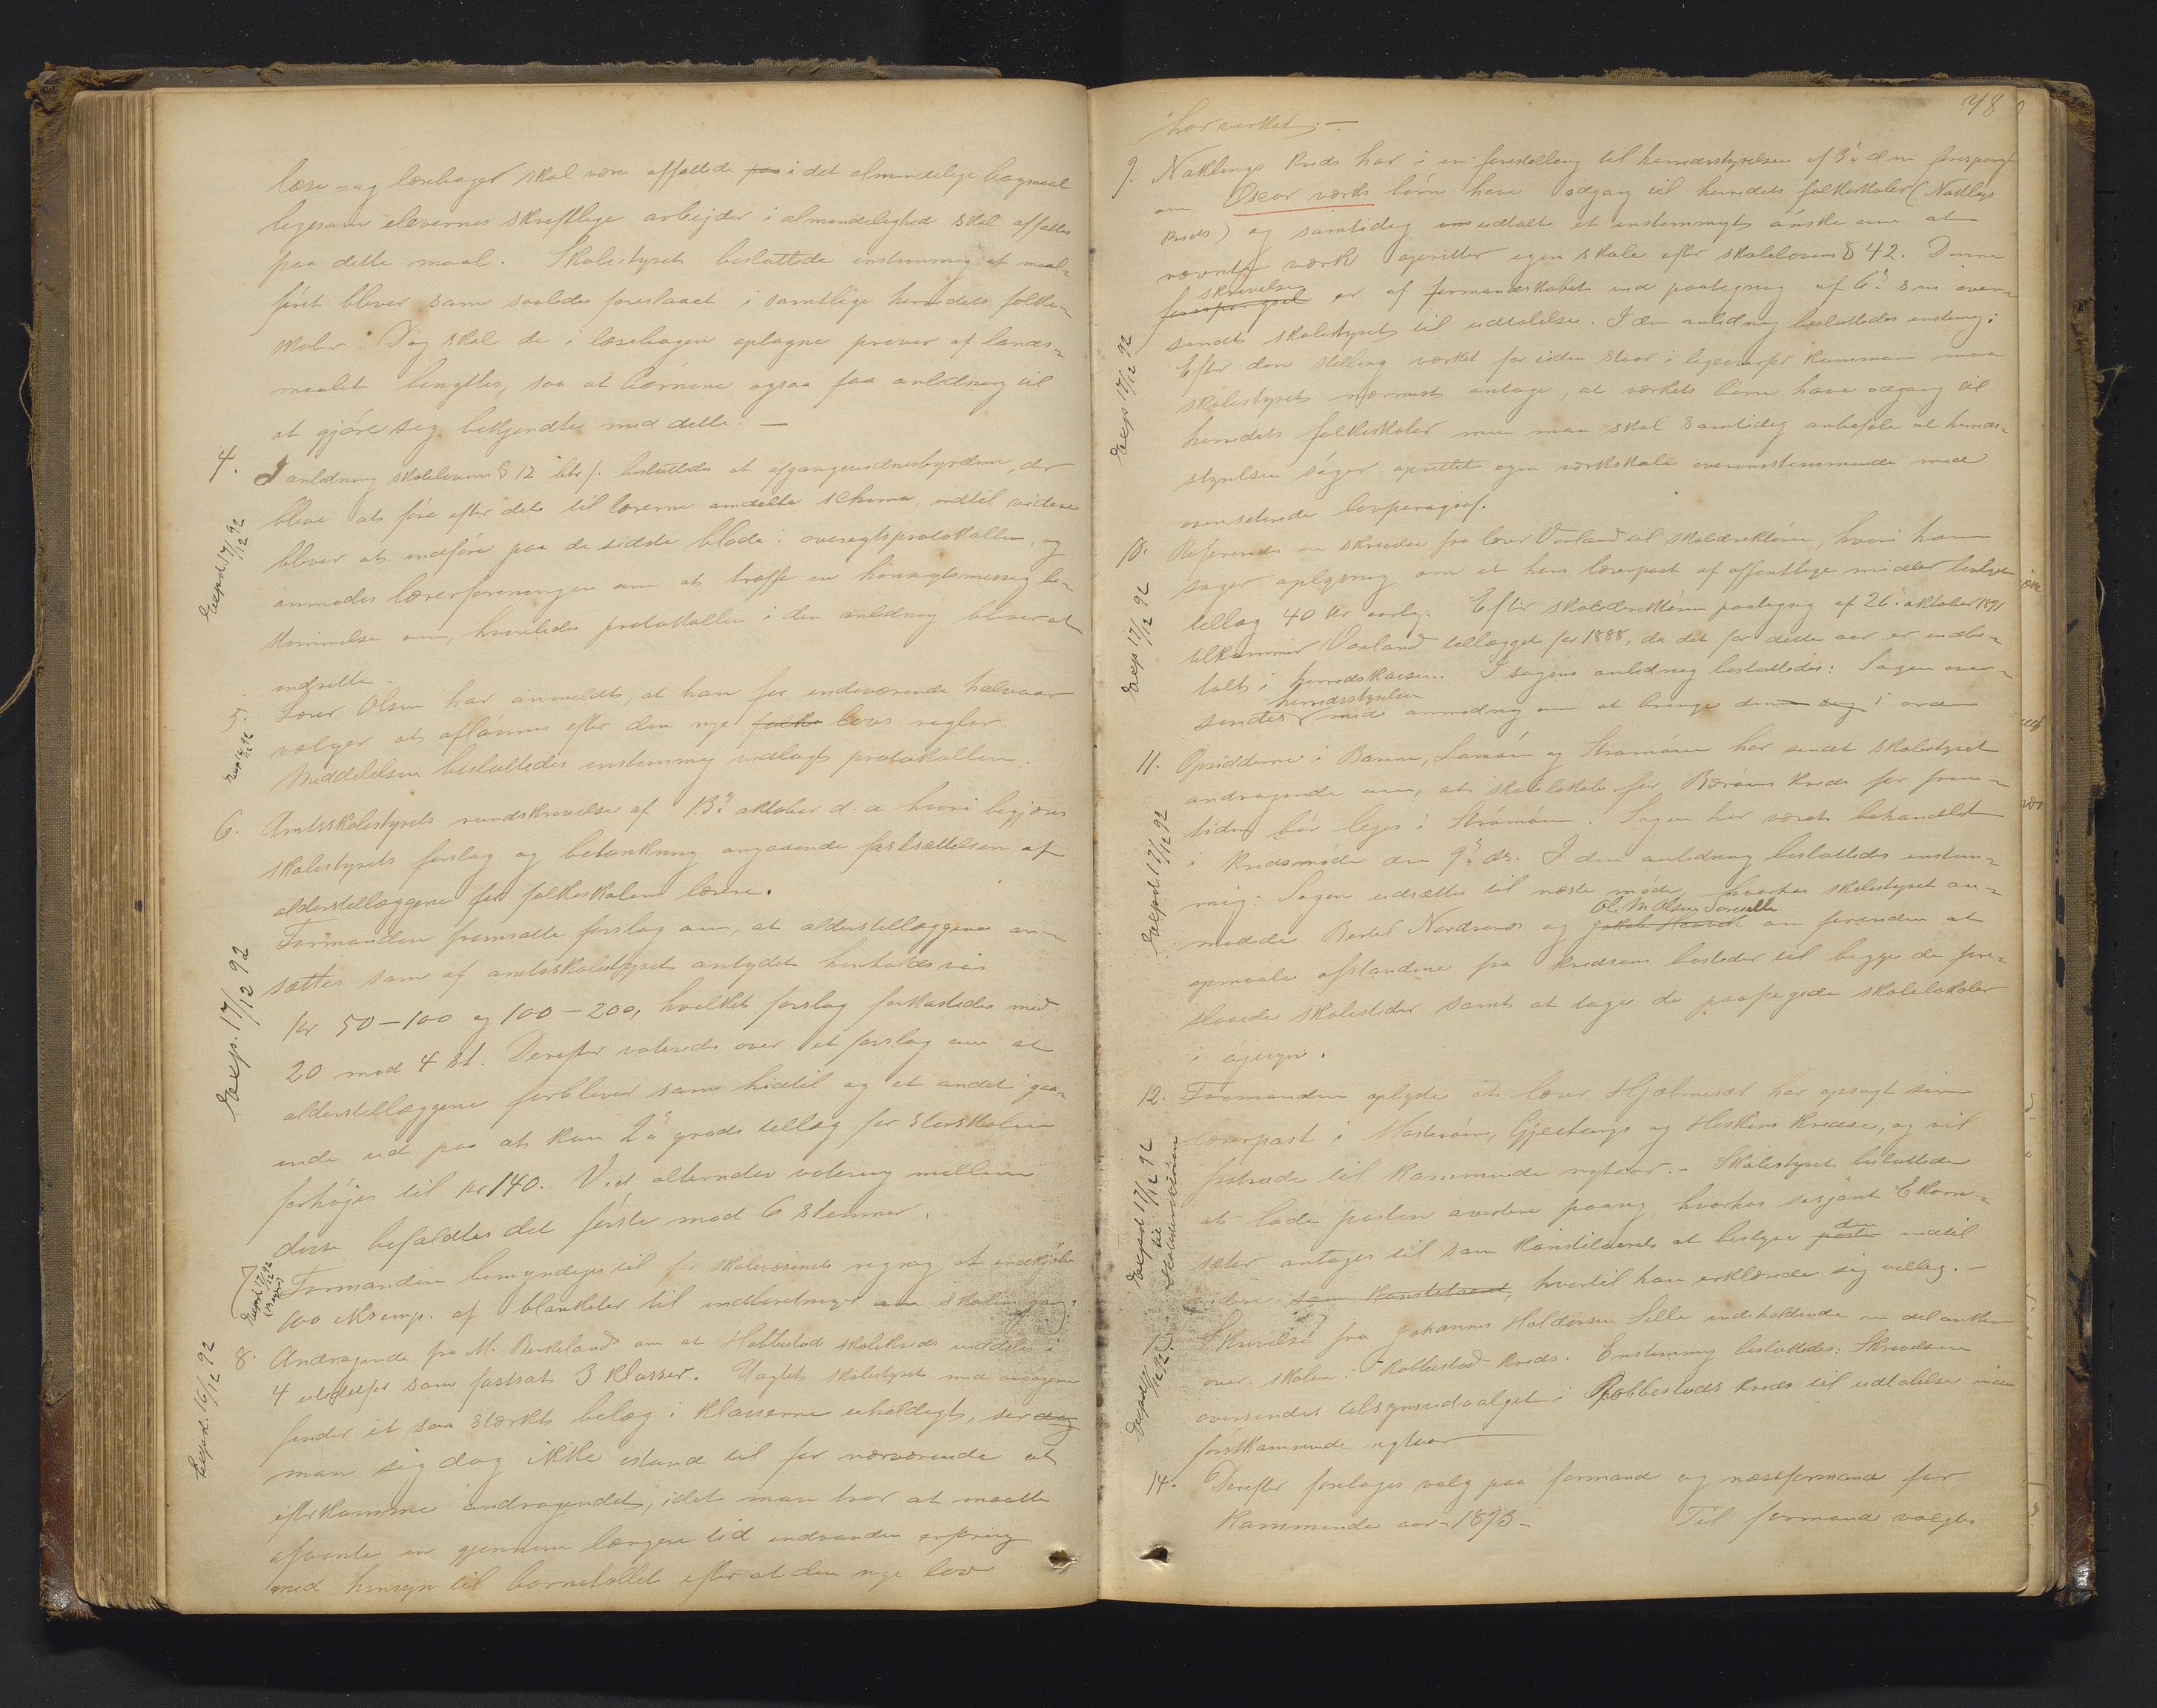 læse- og lærebøger skal være affattede paa i det almindelige bogmaal
ligesom elevernes skriftlige arbejder i almindelighed skal affattes
paa dette maal. Skolestyret besluttede enstemmig at maal-
føret bliver som saaledes foreslaaet i samtlige herredets folke-
skoler. Dog skal de i læsebogen optagne prøver af lands-
maalet benyttes, saa at børnene ogsaa faa anledning til
at gjøre sig bekjendte med dette —
4. I anledning skolelovens § 12 besluttedes at afgangsvidnesbyrdene, der
blive at føre efter det til lærerne omdelte schema, indtil videre
bliver at indføre paa de sidste blade i oversigtsprotokollen, og
anmodes lærerforeningen om at træffe en hensigtsmessig be-
stemmelse om, hvorledes protokollen i den anledning bliver at
indrette.
Expd. 17/12 92
5. Lærer Olsen har anmeldt, at han for indeværende halvaar
vælger at aflønnes efter den nye folke lovs regler.
Meddelelsen besluttedes enstemmig vedlagt protokollen.
6. Amtsskolestyrets rundskrivelse af 13de oktober d. a. hvori begjæres
skolestyrets forslag og betænkning angaaende fastsættelsen af
alderstillæggene for folkeskolens lærere.
Formanden fremsatte forslag om, at alderstillæggene an-
sættes som af amtsskolestyret antydet henholdsvis
kr 50-100 og 100-200, hvilket forslag forkastedes med
20 mod 4 st. Derefter voteredes over et forslag om at
alderstillæggene forbliver som hidtil og et andet gaa-
ende ud paa at kun 2de grads tillæg for storskolen
forhøjes til kr 140. Ved alternativ votering mellem
disse befaldtes det første mod 6 stemmer.
Exp. 17/12 92
7. Formanden bemyndiges til for skolevæsenets regning at indkjøbe
100 eksemp. af blanketter til indberetninger om skolens gang.
Expd. 17/12 92
8. Andragende fra M. Birkeland om at Hobbestad skolekreds inddeles i
4 istedetfor som fastsat 3 klasser. Uagtet skolestyret med ansøgeren
finder et saa stærkt belæg i klasserne uheldigt, ser dog
man sig dog ikke istand til for nærværende at
efterkomme andragendet, idet man tror at maatte
afvente en gjennem længere tid indvunden erfaring
med hensyn til børnetallet efter at den nye lov
Expd. 16/12 92
48
har virket. —
9. Naklings kreds har i en forestilling til herredsstyrelsen af 3de d. m. forespurgt
om Oscar værks børn have adgang til herredets folkeskoler (Naklings
kreds) og samtidig udtalt et enstemmigt ønske om at
nævnte værk opretter egen skole efter skolelovens § 42. Denne
skrivelse
forespørgsel er af formandskabet ved paategning af 6te s. m. over-
sendt skolestyret til udtalelse. I den anledning besluttedes enstemmig:
Efter den stilling værket for tiden staar i ligeoverfor kommunen maa
skolestyret nærmest antage, at værkets børn have adgang til
herredets folkeskoler men man skal samtidig anbefale at herreds-
styrelsen søger oprettet egen værkskole overensstemmende med
ovenciterede lovparagraf.
Exp 17/12 92
10. Refereredes en skrivelse fra lærer Varland til skoledirektøren, hvori han
søger oplysning om et hans lærerpost af offentlige midler
tillæg 40 kr aarlig. Efter skoledirektørens paategning af 26. oktober 1891
tilkommer Varland tillægget for 1888, da det for dette aar er indbe-
talt i herredskassen. I sagens anledning besluttedes: Sagen over-
herredsstyrelsen
sendes med anmodning om at bringe den i orden
Exp 17/12 92
11. Opsidderne i Barine, Lamøen og Strømøen har sendt skolestyret
andragende om, at skolelokale for Børøens kreds for frem-
tiden bør leges i Strømøen. Sagen har været behandlet
i kredsmøde den 9de ds. I den anledning besluttedes enstem-
mig: Sagen udsættes til næste møde, hvorhos skolestyret an-
Ol. M. Olsen
modede Bertel Nordsund og Jakob Haavik om forinden at
opmaale afstandene fra kredsens bosteder til begge de fore-
slaaede skolesteder samt at tage de paapegede skolelokaler
i øjesyn.
Expd 17/12 92
12. Formanden oplyste at lærer Hjelmeset har opsagt sin
lærerpost i Mosterøens, Gjeitungs og Hiskens kredse, og vil
fratræde til kommende nytaar. — Skolestyret besluttede
at lade posten avertere paany, hvorhos sersjant Ekorn-
den
sæter antages til som konstitueret at bestyre posten indtil
videre som konstitueret, hvortil han erklærede sig villig. —
Expd 17/12 92
til
Skoledirektøren
Skrivelse fra Johannes Haldorsen Lille indholdende en del anker
over skolen i Robbestad kreds. Enstemmig besluttedes: Skrivelsen
oversendes tilsynsudvalget i Robbestads kreds til udtalelse inden
førstkommende nytaar
14. Derefter foretoges valg paa formand og næstformand for
kommende aar — 1893 — Til formand valgtes